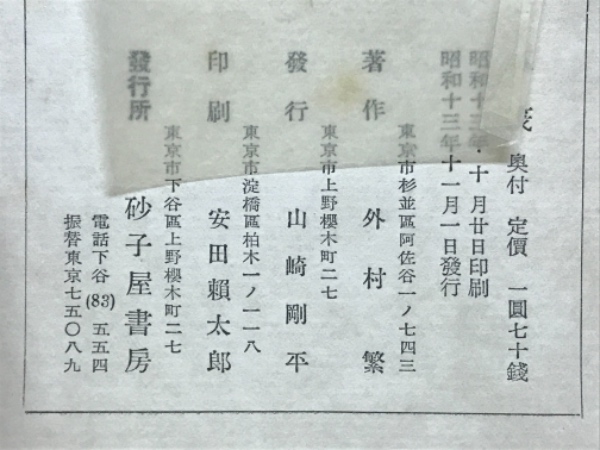 奥付 定價 一圓七十錢
昭和十三年・十月廿日印刷
昭和十三年十一月一日發行
東京市杉並區阿佐谷一ノ七四三
著作 外村繁
東京市上野櫻木町二七
發行 山崎剛平
東京市淀橋區柏木一ノ一一八
印刷 安田賴太郎
東京市下谷區上野櫻木町二七
發行所 砂子屋書房
電話下谷(83)五五四
振替東京七五〇八九